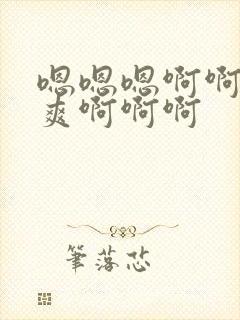 嗯嗯嗯啊啊
爽啊啊啊
筆落芯